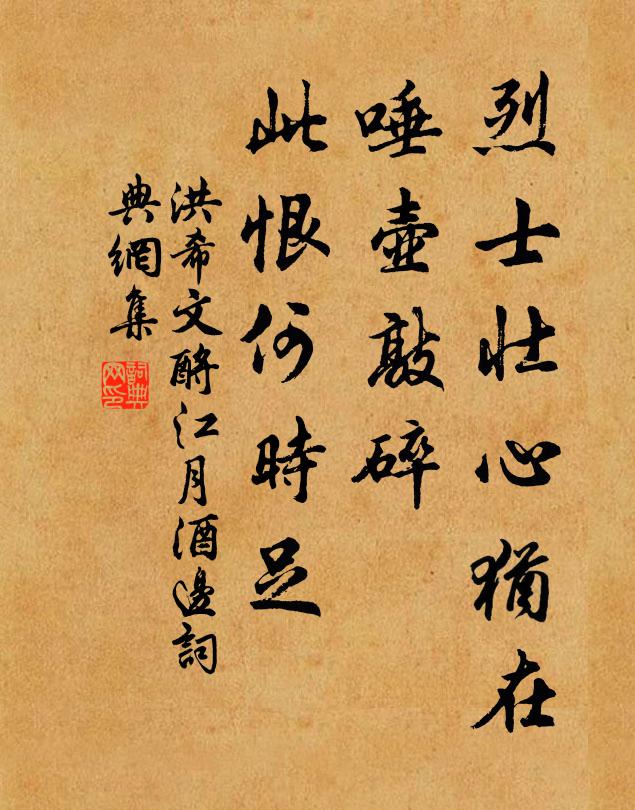 烈士壮心猶在
唾壺敲碎
此恨何時足
洪希文酹江月酒邊詞
典網集
詞典網印